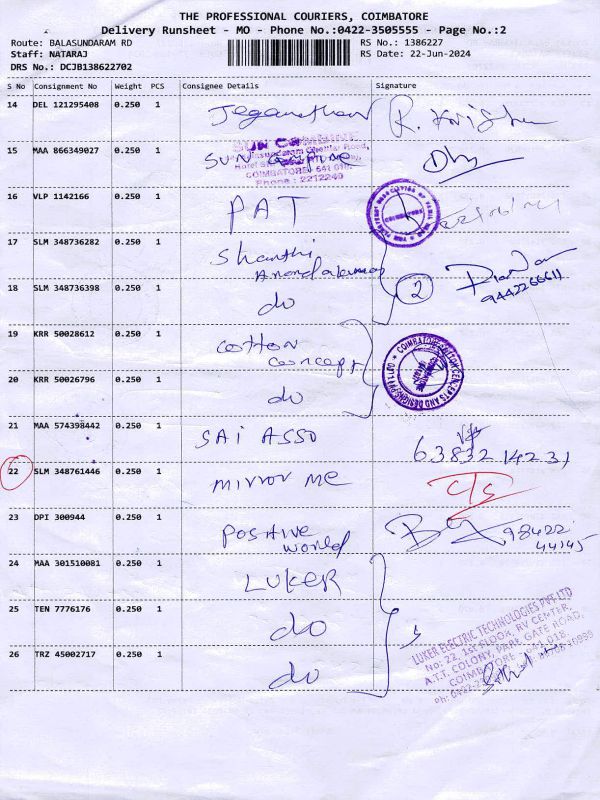 THE PROFESSIONAL COURIERS, COIMBATORE
Delivery Runsheet - MO - Phone No.:0422-3505555 - Page No.:2
Route: BALASUNDARAM RD
RS No.: 1386227
Staff: NATARAJ
RS Date: 22-Jun-2024
DRS No.: DCJB138622702
S No Consignment No Weight PCS Consignee Details Signature
14 DEL 121295408 0.250 1 Jeganathan
15 MAA 866349027 0.250 1 SUN
COIMBATORE 641
Phone : 2212249
16 VLP 1142166 0.250 1 PAT
COIMBATORE
17 SLM 348736282 0.250 1 Shanthi
18 SLM 348736398 0.250 1 do 2
9442266611
19 KRR 50028612 0.250 1 Cotton
Concept
20 KRR 50026796 0.250 1 do
COIMBATORE
21 MAA 574398442 0.250 1 SAI ASSO 63832 14231
22 SLM 348761446 0.250 1 mirror me C/S
23 DPI 300944 0.250 1 positive
world
98422
44145
24 MAA 301510081 0.250 1 LUKER
25 TEN 7776176 0.250 1 do
26 TRZ 45002717 0.250 1 do
LUKER ELECTRIC TECHNOLOGIES PVT LTD
No: 22, 1ST FLOOR, RV CENTER,
A.T.T. COLONY, PARK GATE ROAD,
COIMBATORE - 641 018.